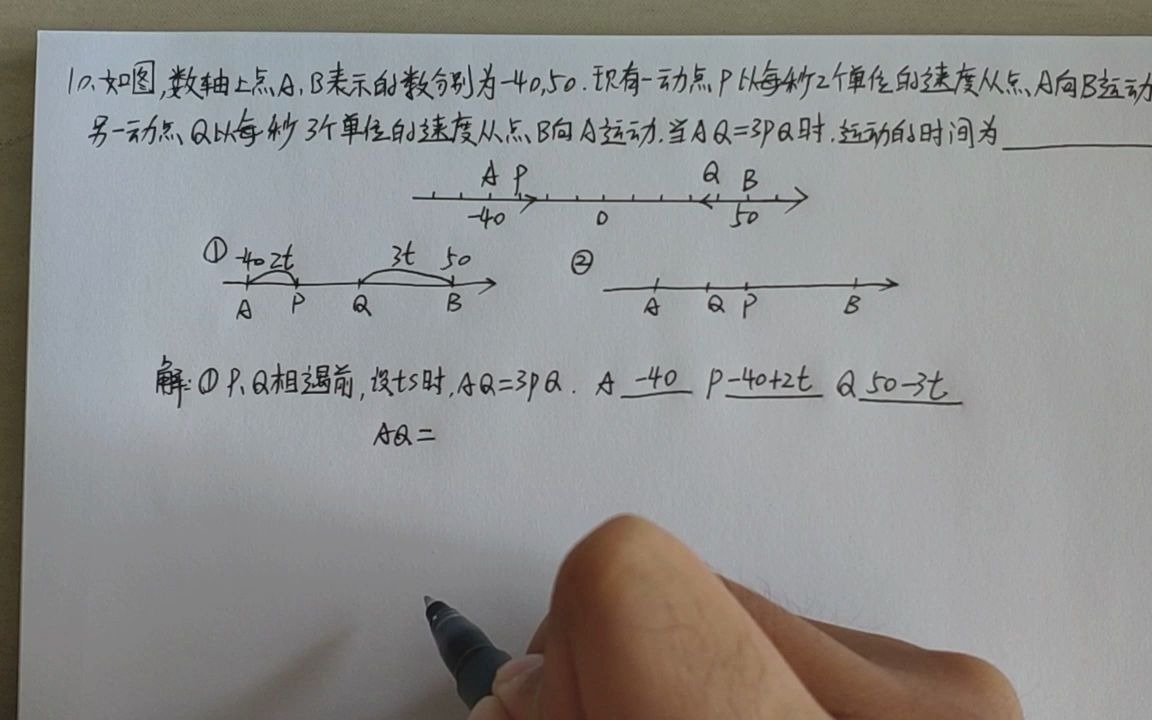 10.如图,数轴上点A、B表示的数分别为-40,50.现有一动点P以每秒2个单位的速度从点A向B运动
另一动点Q以每秒3个单位的速度从点B向A运动.当AQ=3PQ时.运动的时间为
A P Q B
-40 0 50
① -40 2t 3t 50 ②
A P Q B A Q P B
解:①P、Q相遇前,设ts时,AQ=3PQ. A -40 P -40+2t Q 50-3t
AQ=